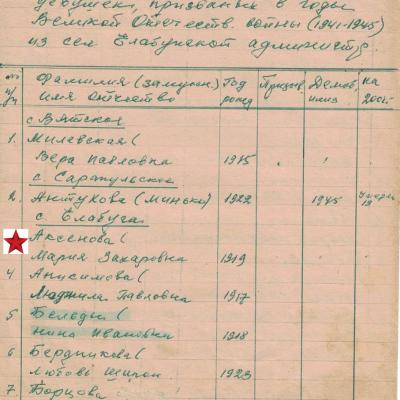 девушек, призванных в годы
Великой Отечеств. войны (1941-1945)
из сел Елабужской администр.
№ п/п Фамилия (замужн.) имя отчество Год рожд Призыв Демобилиз на 2001
с Вятское
1. Милевская (
Вера Павловна 1915
с. Сарапульское
2. Антухова (Минько) 1922 1945
с. Елабуга
Аксенова (
Мария Захаровна 1919
4 Анисимова (
Людмила Павловна 1917
5 Бельды (
Нина Ивановна 1918
6 Бердникова (
Любовь 1923
7. Борцова